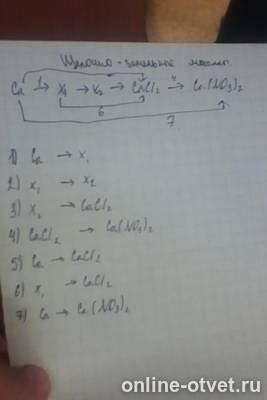 Щелочно-земельные металлы.
Ca 1→ X₁ → X₂ → CaCl₂ 4→ Ca(NO₃)₂
6
7
1) Ca → x₁
2) x₁ → x₂
3) x₂ → CaCl₂
4) CaCl₂ → Ca(NO₃)₂
5) Ca → CaCl₂
6) x₁ → CaCl₂
7) Ca → Ca(NO₃)₂
online-otvet.ru